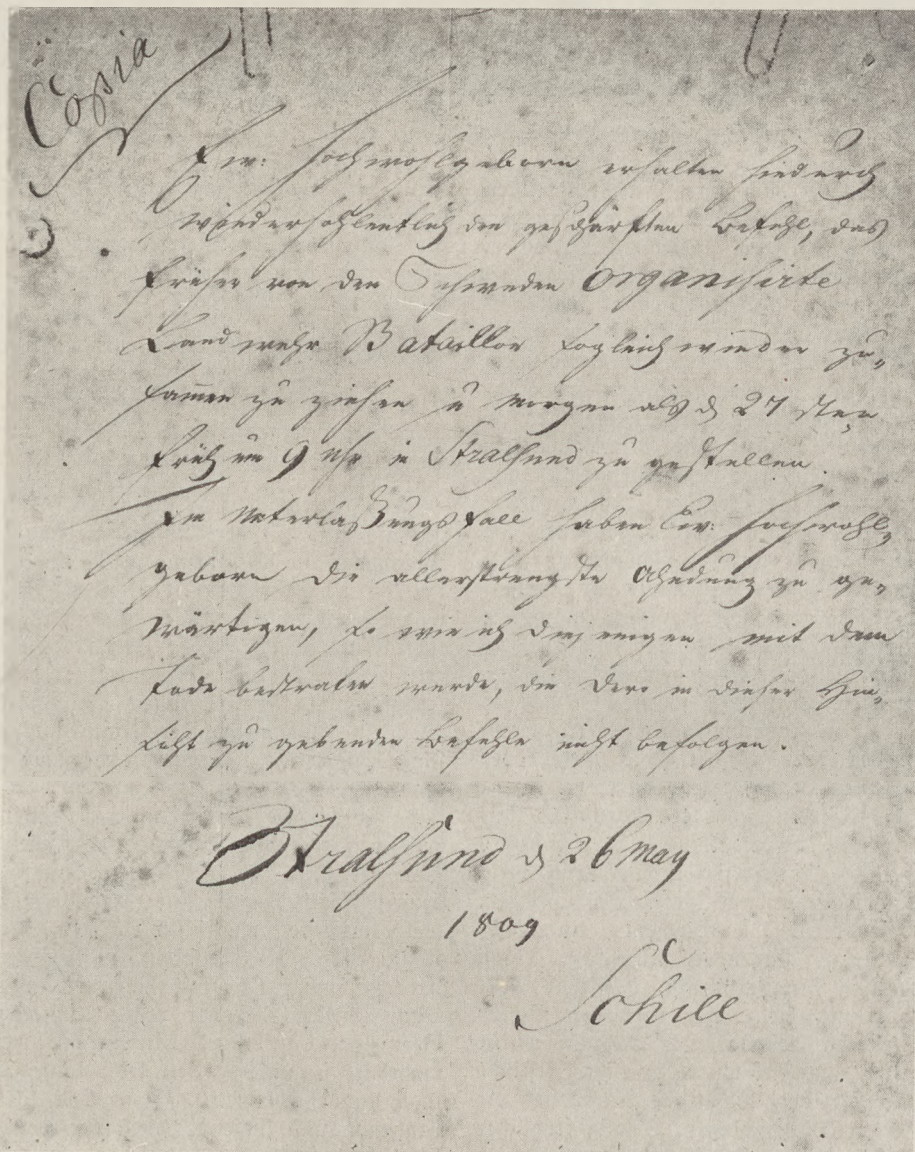 Copia
Ew: Hochwohlgeborn erhalten hiedurch
wiederhohlentlich den geschärften Befehl, das
früher von den Schweden organisirte
Landwehr Bataillon sogleich wieder zu„
sammen zu ziehen u morgen als d 27 sten
früh um 9 Uhr in Stralsund zu gestellen.
Im Unterlaßungsfall haben Ew: Hochwohl„
geborn die allerstrengste Ahndung zu ge„
wärtigen, so wie ich diejenigen mit dem
Tode bestrafen werde, die Dero in dieser Hin„
sicht zu gebenden Befehle nicht befolgen.
Stralsund d 26 May
1809
Schill